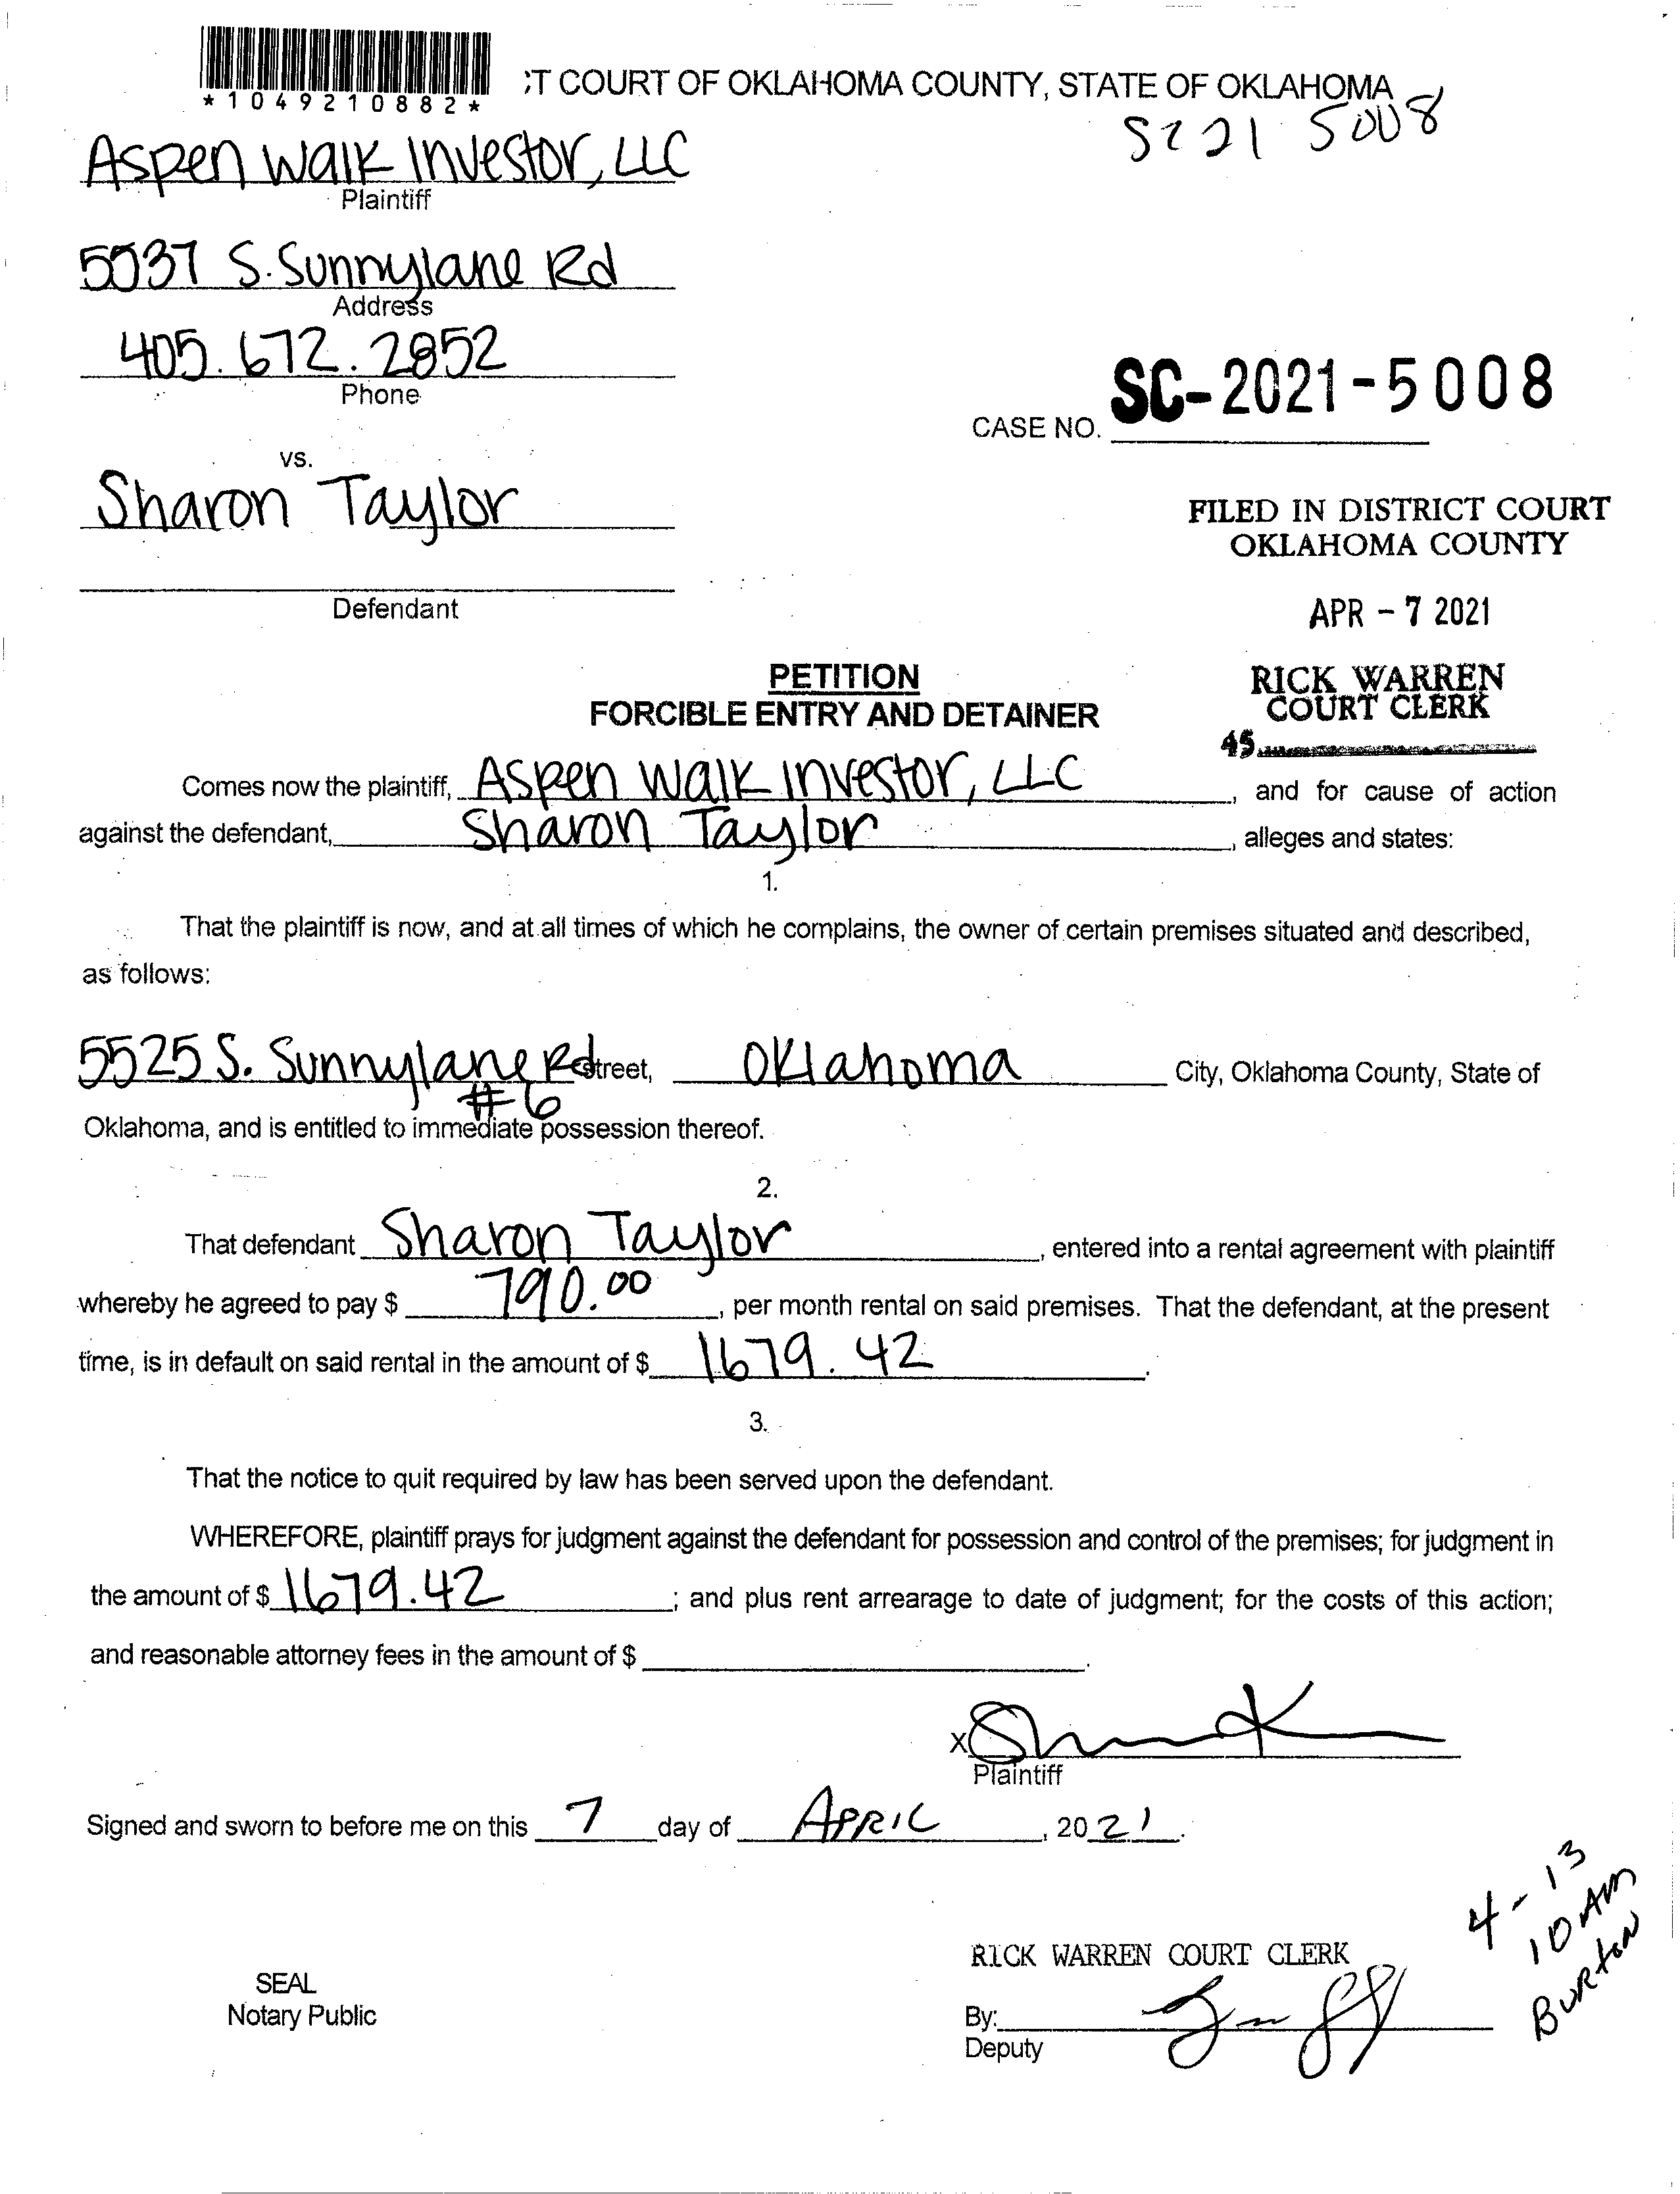 *1049210882*
;T COURT OF OKLAHOMA COUNTY, STATE OF OKLAHOMA
SC 21 5008
Aspen Walk Investor, LLC
Plaintiff
5037 S. Sunnylane Rd
Address
405.672.2852
Phone
CASE NO. SC-2021-5008
vs.
Sharon Taylor
Defendant
FILED IN DISTRICT COURT
OKLAHOMA COUNTY
APR - 7 2021
RICK WARREN
COURT CLERK
45
PETITION
FORCIBLE ENTRY AND DETAINER
Comes now the plaintiff, Aspen Walk Investor, LLC, and for cause of action
against the defendant, Sharon Taylor, alleges and states:
1.
That the plaintiff is now, and at all times of which he complains, the owner of certain premises situated and described,
as follows:
5525 S. Sunnylane Rd street, Oklahoma City, Oklahoma County, State of
#6
Oklahoma, and is entitled to immediate possession thereof.
2.
That defendant Sharon Taylor, entered into a rental agreement with plaintiff
whereby he agreed to pay $ 790.00, per month rental on said premises. That the defendant, at the present
time, is in default on said rental in the amount of $ 1679.42.
3.
That the notice to quit required by law has been served upon the defendant.
WHEREFORE, plaintiff prays for judgment against the defendant for possession and control of the premises; for judgment in
the amount of $ 1679.42; and plus rent arrearage to date of judgment; for the costs of this action;
and reasonable attorney fees in the amount of $ .
X
Plaintiff
Signed and sworn to before me on this 7 day of APRIL, 20 21.
4-13
10 AM
Burton
RICK WARREN COURT CLERK
SEAL
Notary Public
By:
Deputy